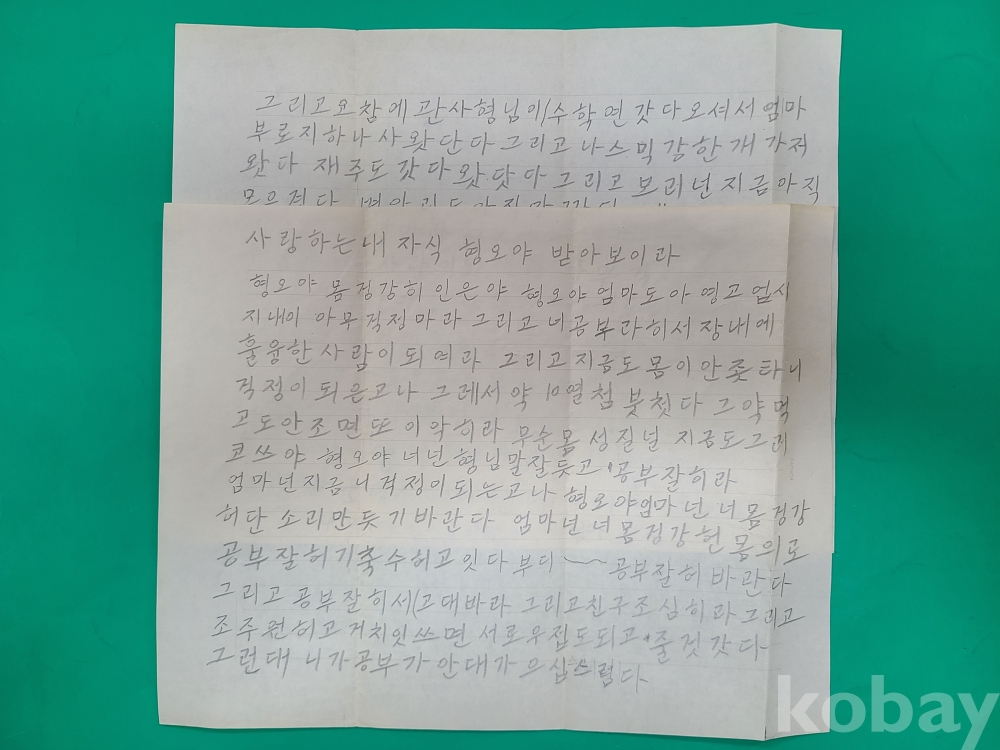 그리고 오참에 관사형님이 수학면 갓다오셔서 엄마
부로지 하나 사왓단다 그리고 나스믹 강한개 가저
왓다 재주도 갓다왓닷다 그리고 보리넌 지금 아직
모으겨다
사랑하는 내 자식 형오야 받아보이라
형오야 몸 겅강히 인은야 형오야 엄마도 아영고 업시
지내이 아무 걱정마라 그리고 너 공부라히서 장내에
훌융한 사람이 되여라 그리고 지금도 몸이 안좃타니
걱정이 되은고나 그레서 약 10열첩 붓첫다 그 약 먹
고도 안조면 또 이악히라 무순 몸 성질닏 지금도 그리
코쓰야 형오야 너넌 형님말 잘듯고 공부잘히라
엄마넌 지금 니 걱정이 되는고나 형오야 엄마넌 너 몸겅강
허단 소리만 듯기바란다 엄마넌 너 몸겅강헌 몸의로
공부잘허기 축수허고 잇다 부디 ~~ 공부잘허 바란다
그리고 공부잘히서 고대바라 그리고 친구조심히라 그리고
조주원허고 거치잇쓰면 서로우집도되고 줄겻갓다
그런대 니가 공부가 안대가 으십스럽다
kobay